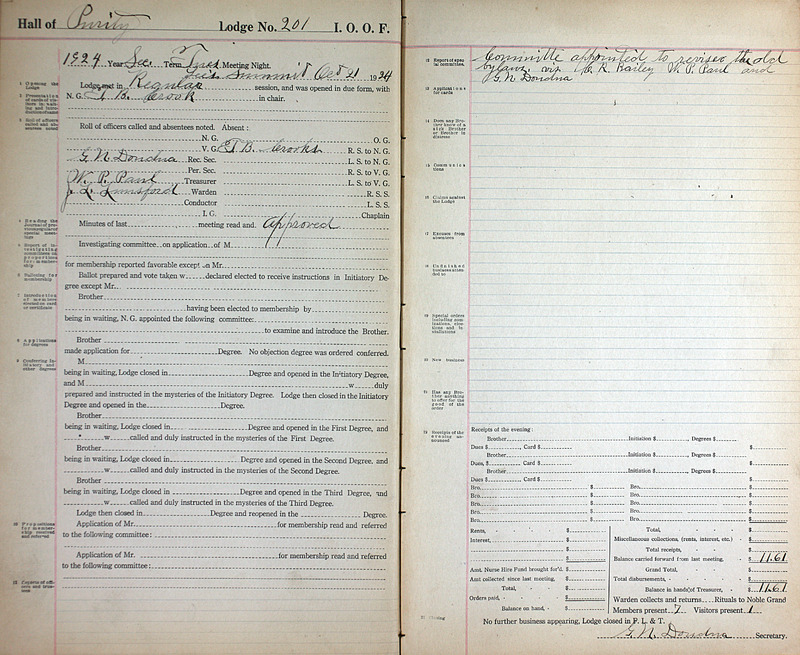 Hall of Purity Lodge No. 201 I. O. O. F.
1924 Year Sec Term Tues Meeting Night.
Oct 21 1924
Lodge met in Regular session, and was opened in due form, with
N. G. T. B. Crook in chair.
Roll of officers called and absentees noted. Absent:
N. G. O. G.
V. G. T. B. Crooks R. S. to N. G.
G. N. Dondna Rec. Sec. L. S. to N. G.
Per. Sec. R. S. to V. G.
W. P. Paul Treasurer L. S. to V. G.
J. L. Lunsford Warden R. S. S.
Conductor L. S. S.
I. G. Chaplain
Minutes of last meeting read and Approved
Investigating committee on application of M
for membership reported favorable except on Mr.
Ballot prepared and vote taken w declared elected to receive instructions in Initiatory De-
gree except Mr.
Brother
having been elected to membership by
being in waiting, N. G. appointed the following committee:
to examine and introduce the Brother.
Brother
made application for Degree. No objection degree was ordered conferred.
M
being in waiting, Lodge closed in Degree and opened in the Initiatory Degree,
and M w duly
prepared and instructed in the mysteries of the Initiatory Degree. Lodge then closed in the Initiatory
Degree and opened in the Degree.
Brother
being in waiting, Lodge closed in Degree and opened in the First Degree, and
w called and duly instructed in the mysteries of the First Degree.
Brother
being in waiting, Lodge closed in Degree and opened in the Second Degree, and
w called and duly instructed in the mysteries of the Second Degree.
Brother
being in waiting, Lodge closed in Degree and opened in the Third Degree, and
w called and duly instructed in the mysteries of the Third Degree.
Lodge then closed in Degree and reopened in the Degree.
Application of Mr. for membership read and referred
to the following committee:
Application of Mr. for membership read and referred
to the following committee:
12 Reports of special committee.
Committe appointed to revise the old
bylaws viz R. Bailey W. P. Paul and
G. N. Dondna
13 Applications for cards
14 Does any Brother know of a sick Brother or Brother in distress
15 Communications
16 Claims against the Lodge
17 Excuses from absentees
18 Unfinished business attended to
19 Special orders including nominations, elections and installations
20 New business
21 Has any Brother anything to offer for the good of the order
Receipts of the evening:
Brother Initiation $ , Degrees $
Dues $ , Card $ $
Brother Initiation $ , Degrees $
Dues, $ , Card $ $
Brother Initiation $ , Degrees $
Dues $ , Card $ $
Bro. $ Bro. $
Bro. $ Bro. $
Bro. $ Bro. $
Bro. $ Bro. $
Bro. $ Bro. $
Rents, $ Total, $
Interest, $ Miscellaneous collections, (rents, interest, etc.) $
$ Total receipts, $
$ Balance carried forward from last meeting, $ 11.61
Amt. Nurse Hire Fund brought for'd. $ Grand Total, $
Amt collected since last meeting, $ Total disbursements, $
Total, $ Balance in hands of Treasurer, $ 11.61
Orders paid, $ Warden collects and returns Rituals to Noble Grand
Balance on hand, $ Members present 7 Visitors present 1
No further business appearing, Lodge closed in F. L. & T.
G. N. Dondna Secretary.